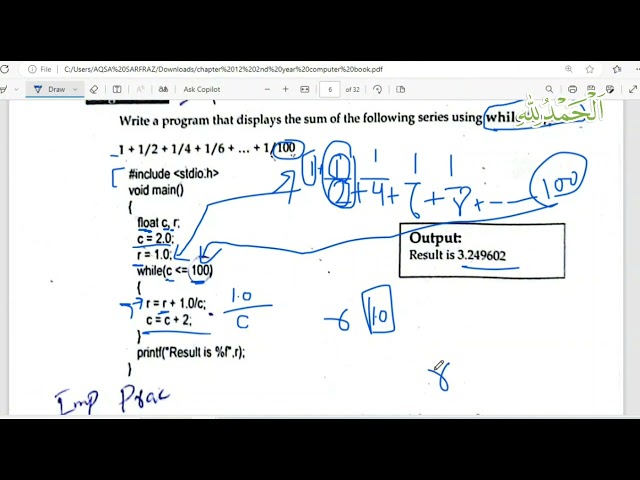 File C:/Users/AQSA%20SARFRAZ/Downloads/chapter%2012%202nd%20year%20computer%20book.pdf
Draw Ask Copilot 6 of 32
اَلْحَمْدُلِلّٰهِ
Write a program that displays the sum of the following series using whil
1 + 1/2 + 1/4 + 1/6 + ... + 1/100
1 + 1/2 + 1/4 + 1/6 + 1/8 + --- 100
#include <stdio.h>
void main()
{
float c, r;
c = 2.0;
r = 1.0;
while(c <= 100)
{
r = r + 1.0/c;
c = c + 2;
}
printf("Result is %f",r);
}
Output:
Result is 3.249602
1.0
C
1.0
Imp Prac